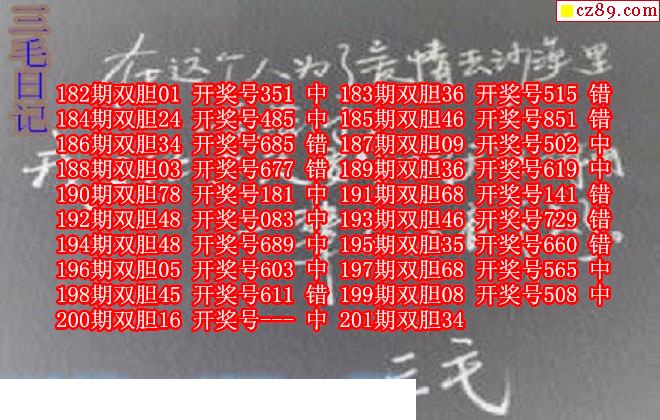 cz89.com
三毛日记
在这个人为了爱情去沙海里
182期双胆01 开奖号351 中 183期双胆36 开奖号515 错
184期双胆24 开奖号485 中 185期双胆46 开奖号851 错
186期双胆34 开奖号685 错 187期双胆09 开奖号502 中
188期双胆03 开奖号677 错 189期双胆36 开奖号619 中
190期双胆78 开奖号181 中 191期双胆68 开奖号141 错
192期双胆48 开奖号083 中 193期双胆46 开奖号729 错
194期双胆48 开奖号689 中 195期双胆35 开奖号660 错
196期双胆05 开奖号603 中 197期双胆68 开奖号565 中
198期双胆45 开奖号611 错 199期双胆08 开奖号508 中
200期双胆16 开奖号--- 中 201期双胆34
三毛